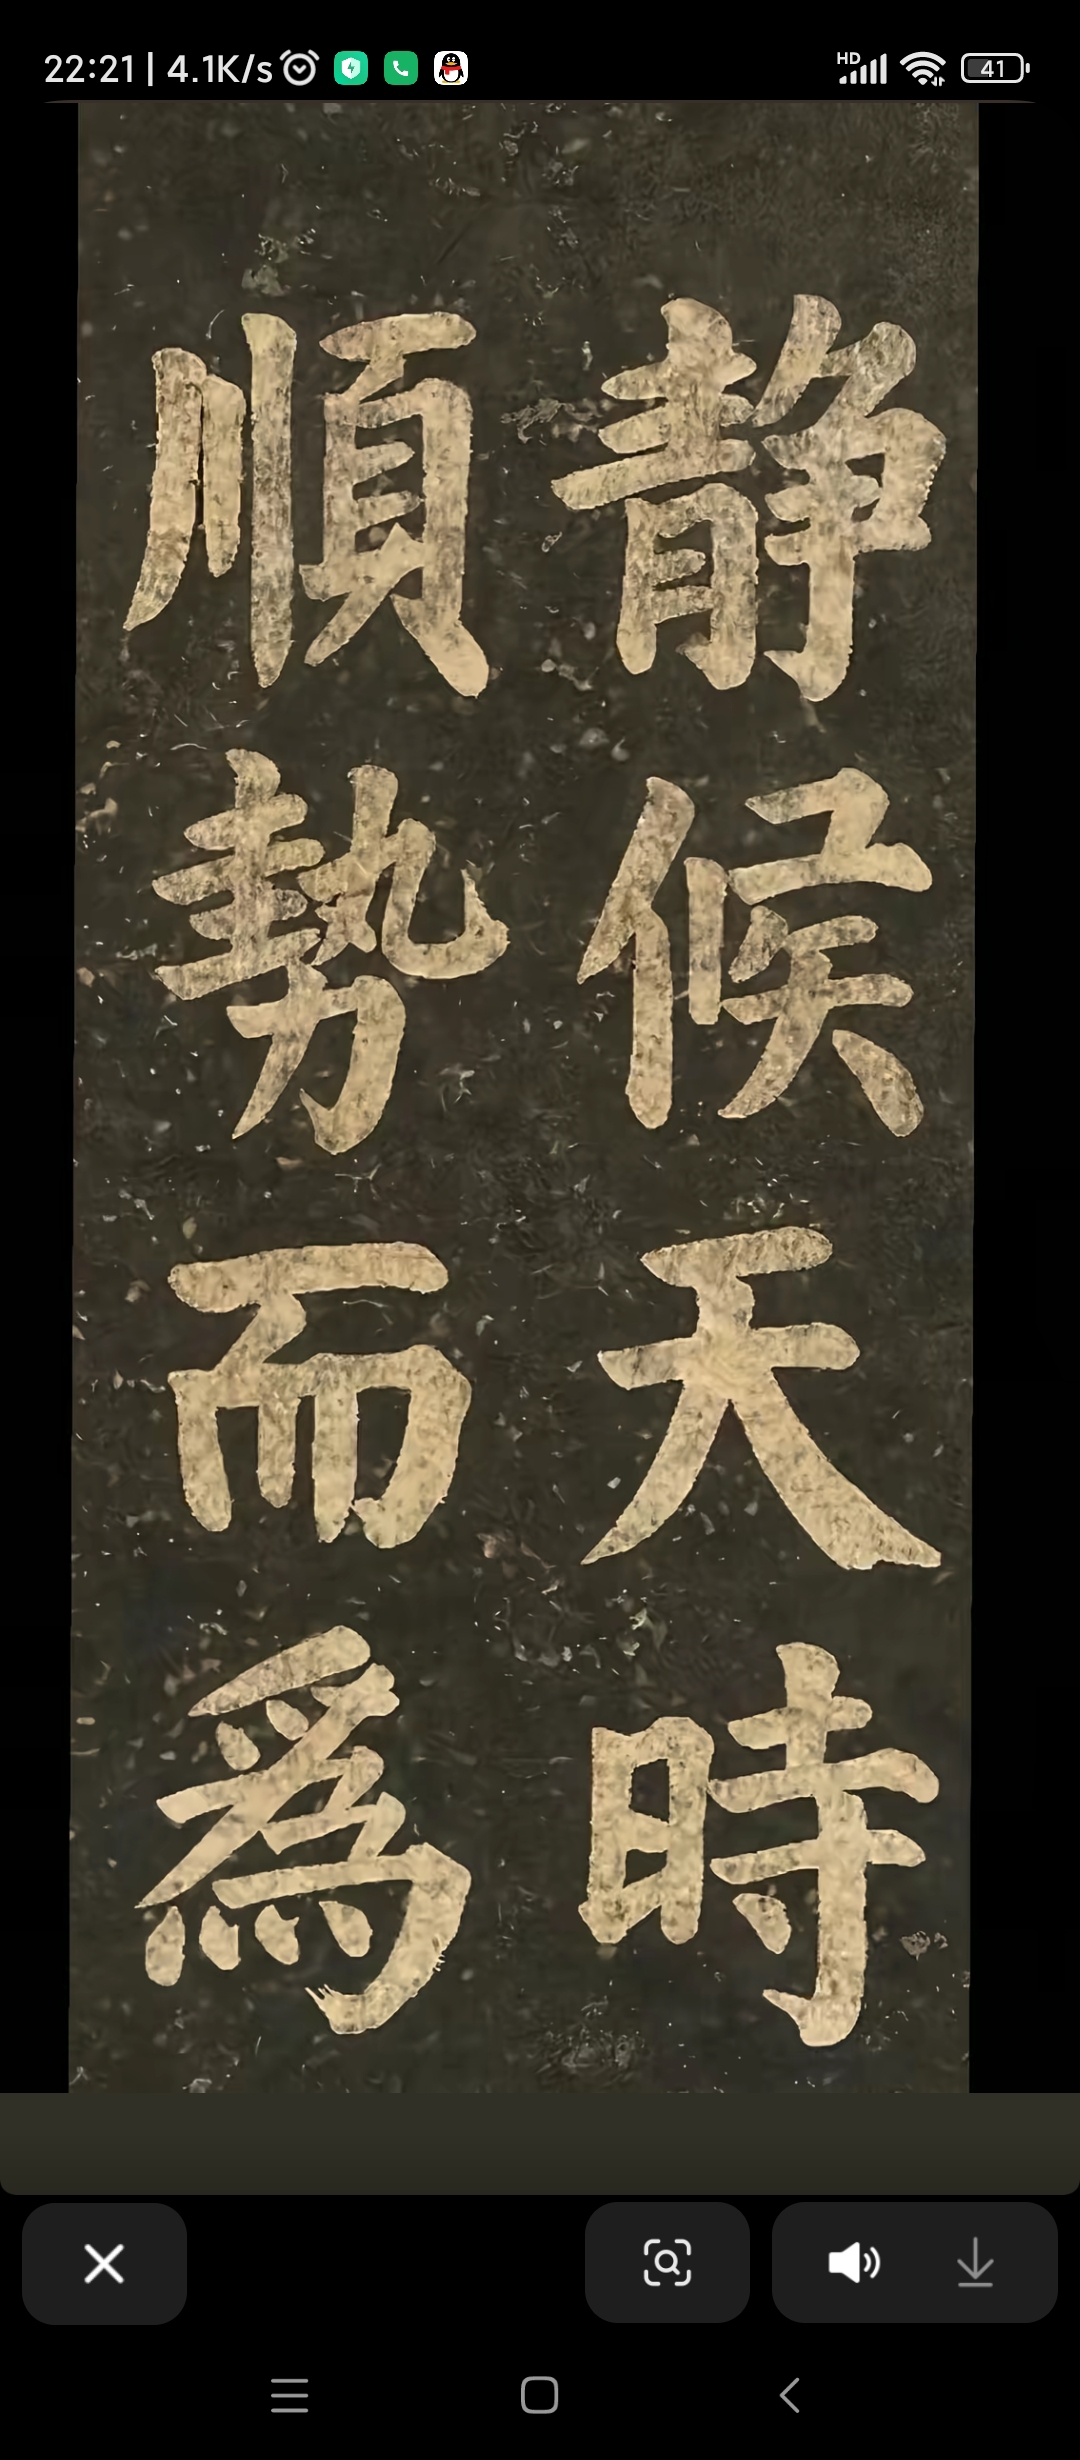 22:21 | 4.1K/s
HD
41
静候天時
順勢而為